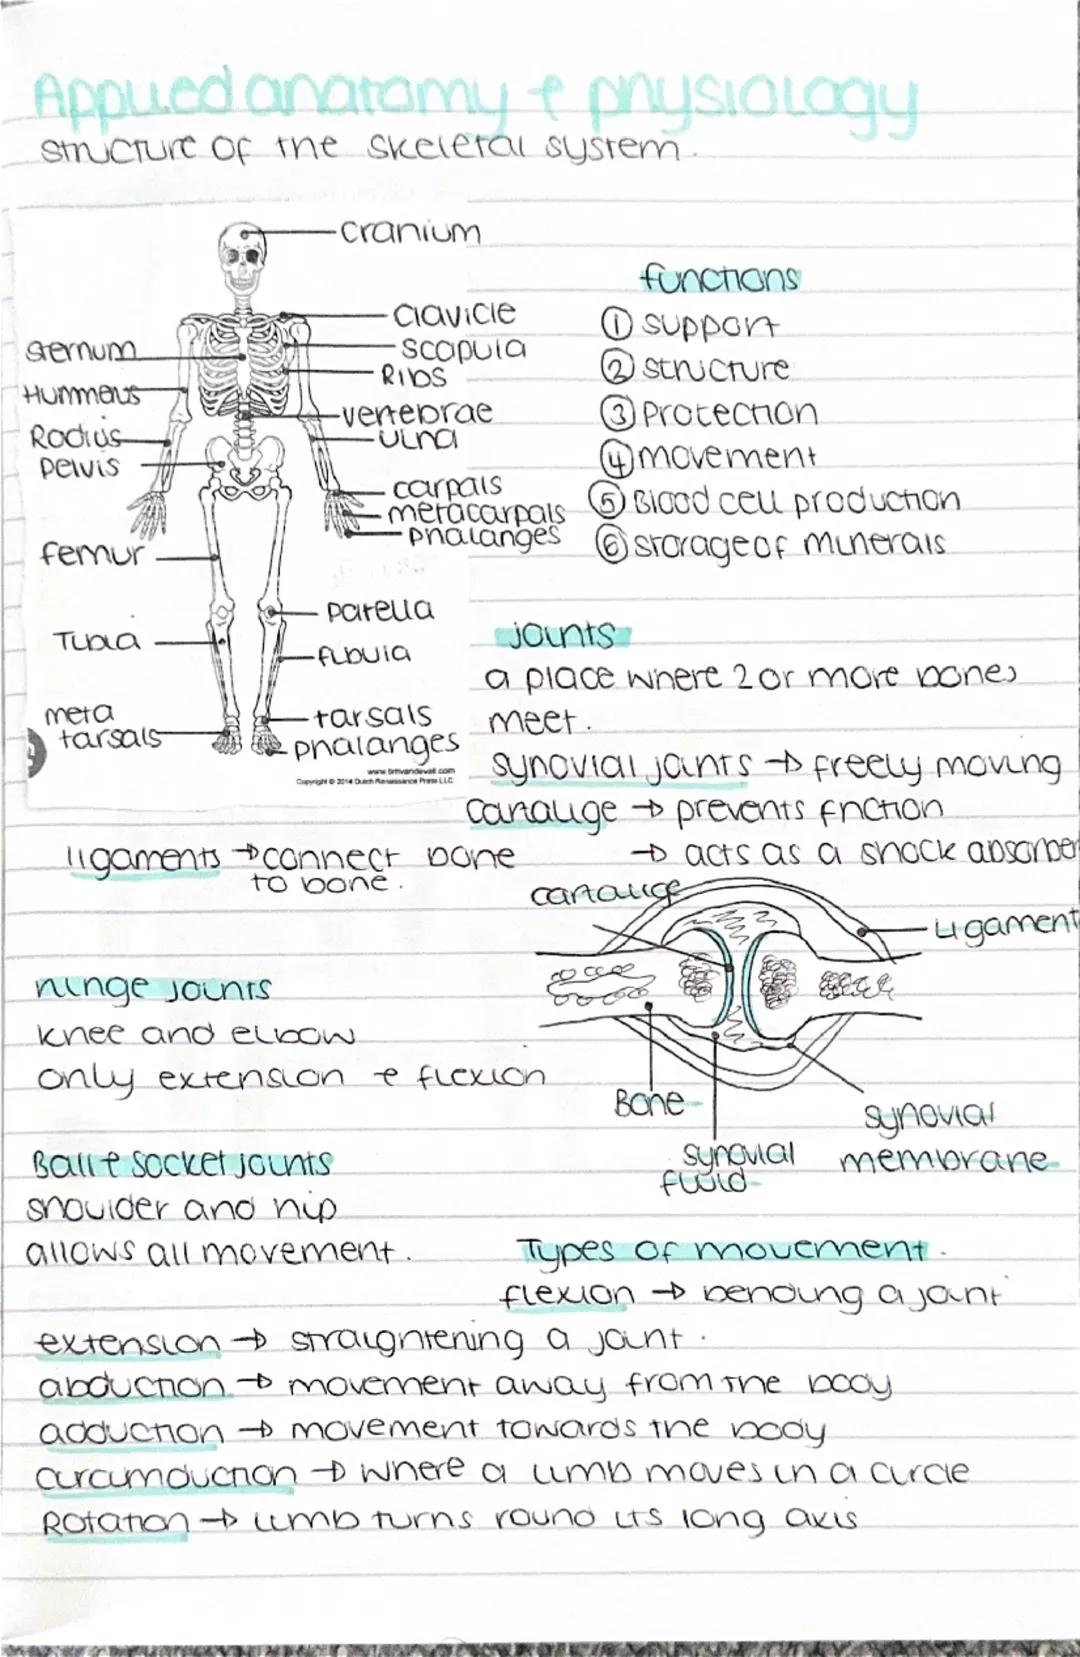 Applied anatomy & physiology
structure of the skeletal system.
cranium
clavicle
scapula
Ribs
vertebrae
ulna
carpals
metacarpals
phalanges
sternum
Hummerus
Radius
pelvis
femur
Tibia
meta
tarsals
patella
fibula
tarsals
phalanges
www.timvandevall.com
Copyright © 2014 Dutch Renaissance Press LLC
functions
① support
② structure
③ Protection
④ movement
⑤ Blood cell production
⑥ storage of minerals
joints
a place where 2 or more bones
meet.
synovial joints → freely moving
cartalige → prevents friction
→ acts as a shock absorber
ligaments → connect bone
to bone.
cartalige
Ligament
Bone
synovial
fluid
synovial
membrane
hinge joints
knee and elbow
only extension & flexion
Ball & socket joints
shoulder and hip
allows all movement.
Types of movement.
flexion → bending a joint
extension → straightening a joint.
abduction → movement away from the body
adduction → movement towards the body
circumduction → where a limb moves in a circle
Rotation → limb turns round its long axis